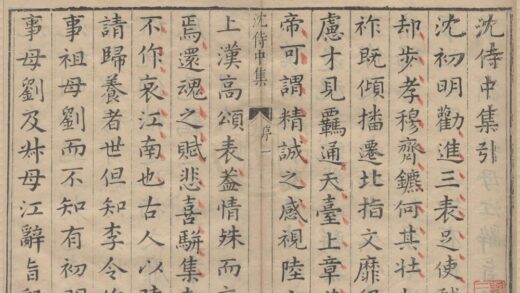 沈侍中集引
沈初明勸進三表足使
却步孝穆齊鑣何其壯
祚既傾播遷北指文靡
慮才見羈通天臺上章
帝可謂精誠之感視陸
沈侍中集
序
一
上漢高頌表葢情殊而
焉還魂之賦悲喜駢集
不作哀江南也古人以
請歸養者世但知李令
事祖母劉而不知有初
事母劉及叔母江辭旨